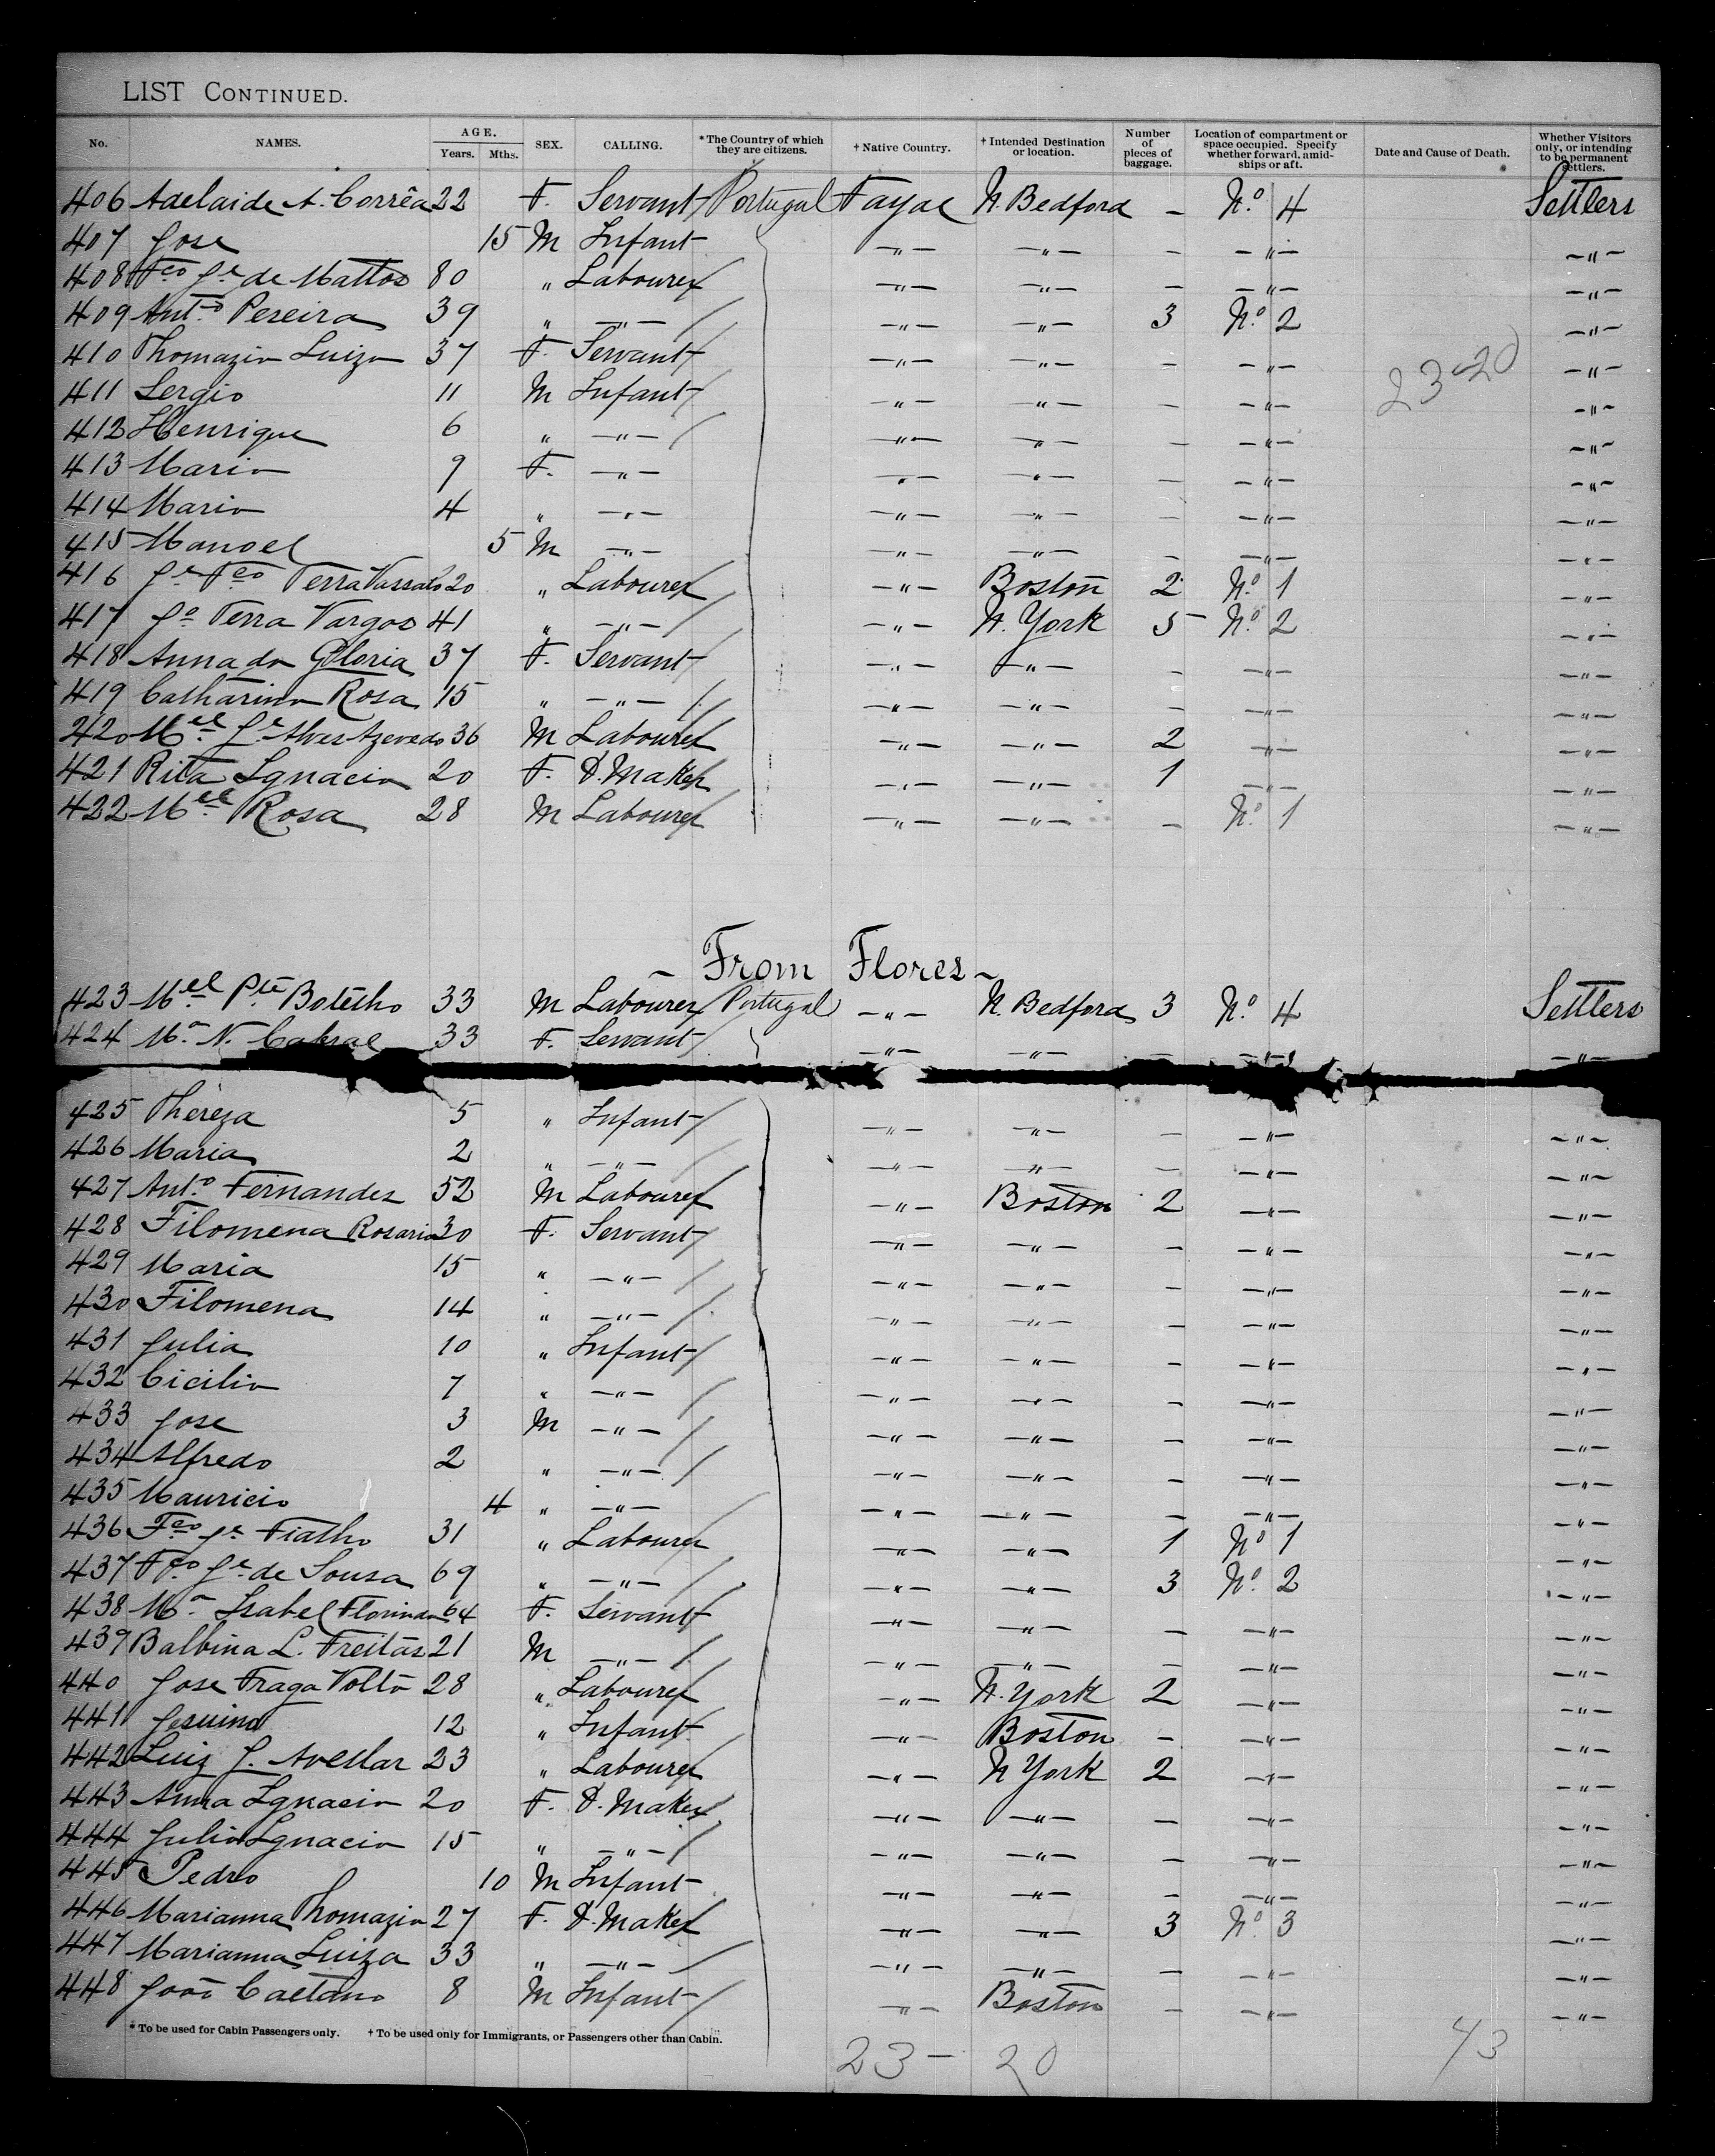 LIST CONTINUED.
No. NAMES. AGE. Years. Mths. SEX. CALLING. * The Country of which they are citizens. † Native Country. † Intended Destination or location. Number of pieces of baggage. Location of compartment or space occupied. Specify whether forward, amidships or aft. Date and Cause of Death. Whether Visitors only, or intending to be permanent settlers.
406 Adelaide A. Corrêa 22 F. Servant Portugal Fayal N. Bedford – No. 4 Settlers
407 Jose 15 M Infant –"– –"– – –"– –"–
408 Fco Je de Mattos 80 " Labourer –"– –"– – –"– –"–
409 Anto Pereira 39 " –"– –"– –"– 3 No. 2 –"–
410 Thomazia Luiza 37 F. Servant –"– –"– – –"– –"–
23-20
411 Sergio 11 M Infant –"– –"– – –"– –"–
412 Henrique 6 " –"– –"– –"– – –"– –"–
413 Maria 9 F. –"– –"– –"– – –"– –"–
414 Maria 4 " –"– –"– –"– – –"– –"–
415 Manoel 5 M –"– –"– –"– – –"– –"–
416 Je Fco Terra 20 " Labourer –"– Boston 2 No. 1 –"–
417 Jo Terra Vargas 41 " –"– –"– N. York 5 No. 2 –"–
418 Anna da Gloria 37 F. Servant –"– –"– – –"– –"–
419 Catharina Rosa 15 " –"– –"– –"– – –"– –"–
420 Mel Je Alves Azevedo 36 M Labourer –"– –"– 2 –"– –"–
421 Rita Ignacia 20 F. D. Maker –"– –"– 1 –"– –"–
422 Mel Rosa 28 M Labourer –"– –"– – No. 1 –"–
– From Flores –
423 Mel Pte Botelho 33 M Labourer Portugal –"– N. Bedford 3 No. 4 Settlers
424 Ma N. Cabral 33 F. Servant –"– –"– – –"– –"–
425 Thereza 5 " Infant –"– –"– – –"– –"–
426 Maria 2 " –"– –"– –"– – –"– –"–
427 Anto Fernandes 52 M Labourer –"– Boston 2 –"– –"–
428 Filomena Rosaria 30 F. Servant –"– –"– – –"– –"–
429 Maria 15 " –"– –"– –"– – –"– –"–
430 Filomena 14 " –"– –"– –"– – –"– –"–
431 Julia 10 " Infant –"– –"– – –"– –"–
432 Cicilia 7 " –"– –"– –"– – –"– –"–
433 Jose 3 M –"– –"– –"– – –"– –"–
434 Alfredo 2 " –"– –"– –"– – –"– –"–
435 Mauricio 4 " –"– –"– –"– – –"– –"–
436 Fco Je Fialho 31 " Labourer –"– –"– 1 No. 1 –"–
437 Fco Je de Sousa 69 " –"– –"– –"– 3 No. 2 –"–
438 Ma Isabel Florinda 64 F. Servant –"– –"– – –"– –"–
439 Balbina L. Freitas 21 M –"– –"– –"– – –"– –"–
440 Jose Fraga Volta 28 " Labourer –"– N. York 2 –"– –"–
441 Jesuino 12 " Infant –"– Boston – –"– –"–
442 Luiz J. Avellar 23 " Labourer –"– N York 2 –"– –"–
443 Anna Ignacia 20 F. D. Maker –"– –"– – –"– –"–
444 Julia Ignacia 15 " –"– –"– –"– – –"– –"–
445 Pedro 10 M Infant –"– –"– – –"– –"–
446 Marianna Thomazia 27 F. D. Maker –"– –"– 3 No. 3 –"–
447 Marianna Luiza 33 " –"– –"– –"– – –"– –"–
448 João Caetano 8 M Infant –"– Boston – –"– –"–
* To be used for Cabin Passengers only. † To be used only for Immigrants, or Passengers other than Cabin.
23 – 20 43